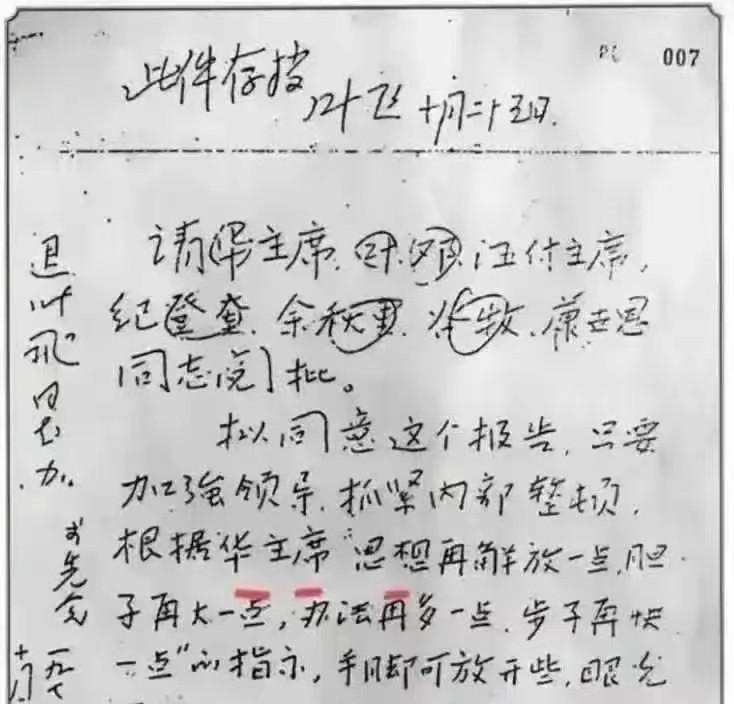 007
此件存档 叶飞 十月二十五日.
请华主席、叶、邓、汪付主席,
纪登奎、余秋里、谷牧、康世恩
同志阅批。
拟同意这个报告,只要
加强领导,抓紧内部整顿,
根据华主席“思想再解放一点,胆
子再大一点,办法再多一点,步子再快
一点”的指示,手脚可放开些,眼光
退叶飞同志办.
李先念
一九七
十月